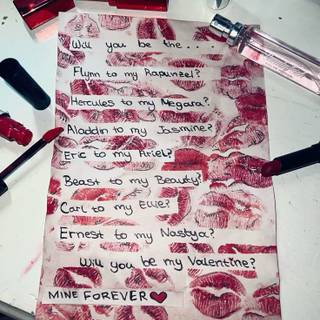 Will you be the ....
Flynn to my Rapunzel?
Hercules to my Megara?
Aladdin to my Jasmine?
Eric to my Ariel?
Beast to my Beauty?
Carl to my Ellie?
Ernest to my Nastya?
Will you be my Valentine?
MINE FOREVER ♥